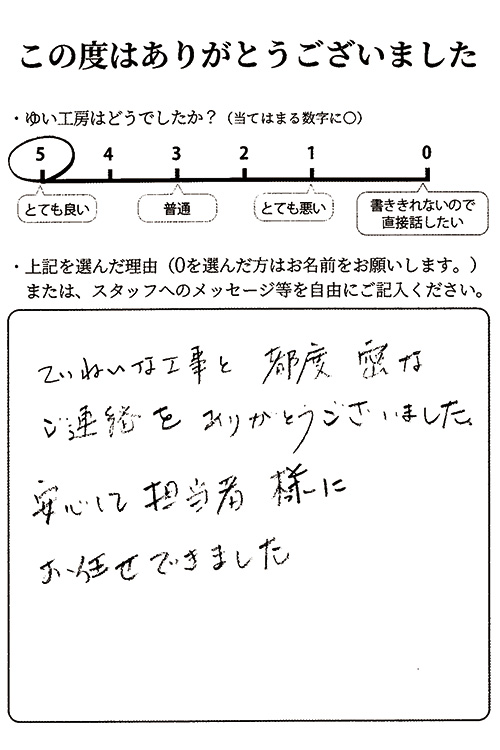 この度はありがとうございました
・ゆい工房はどうでしたか？（当てはまる数字に〇）
5 4 3 2 1 0
とても良い 普通 とても悪い 書ききれないので
直接話したい
・上記を選んだ理由（0を選んだ方はお名前をお願いします。）
または、スタッフへのメッセージ等を自由にご記入ください。
ていねいな工事と 都度 密な
ご連絡を ありがとうございました。
安心して 担当者 様に
お任せできました